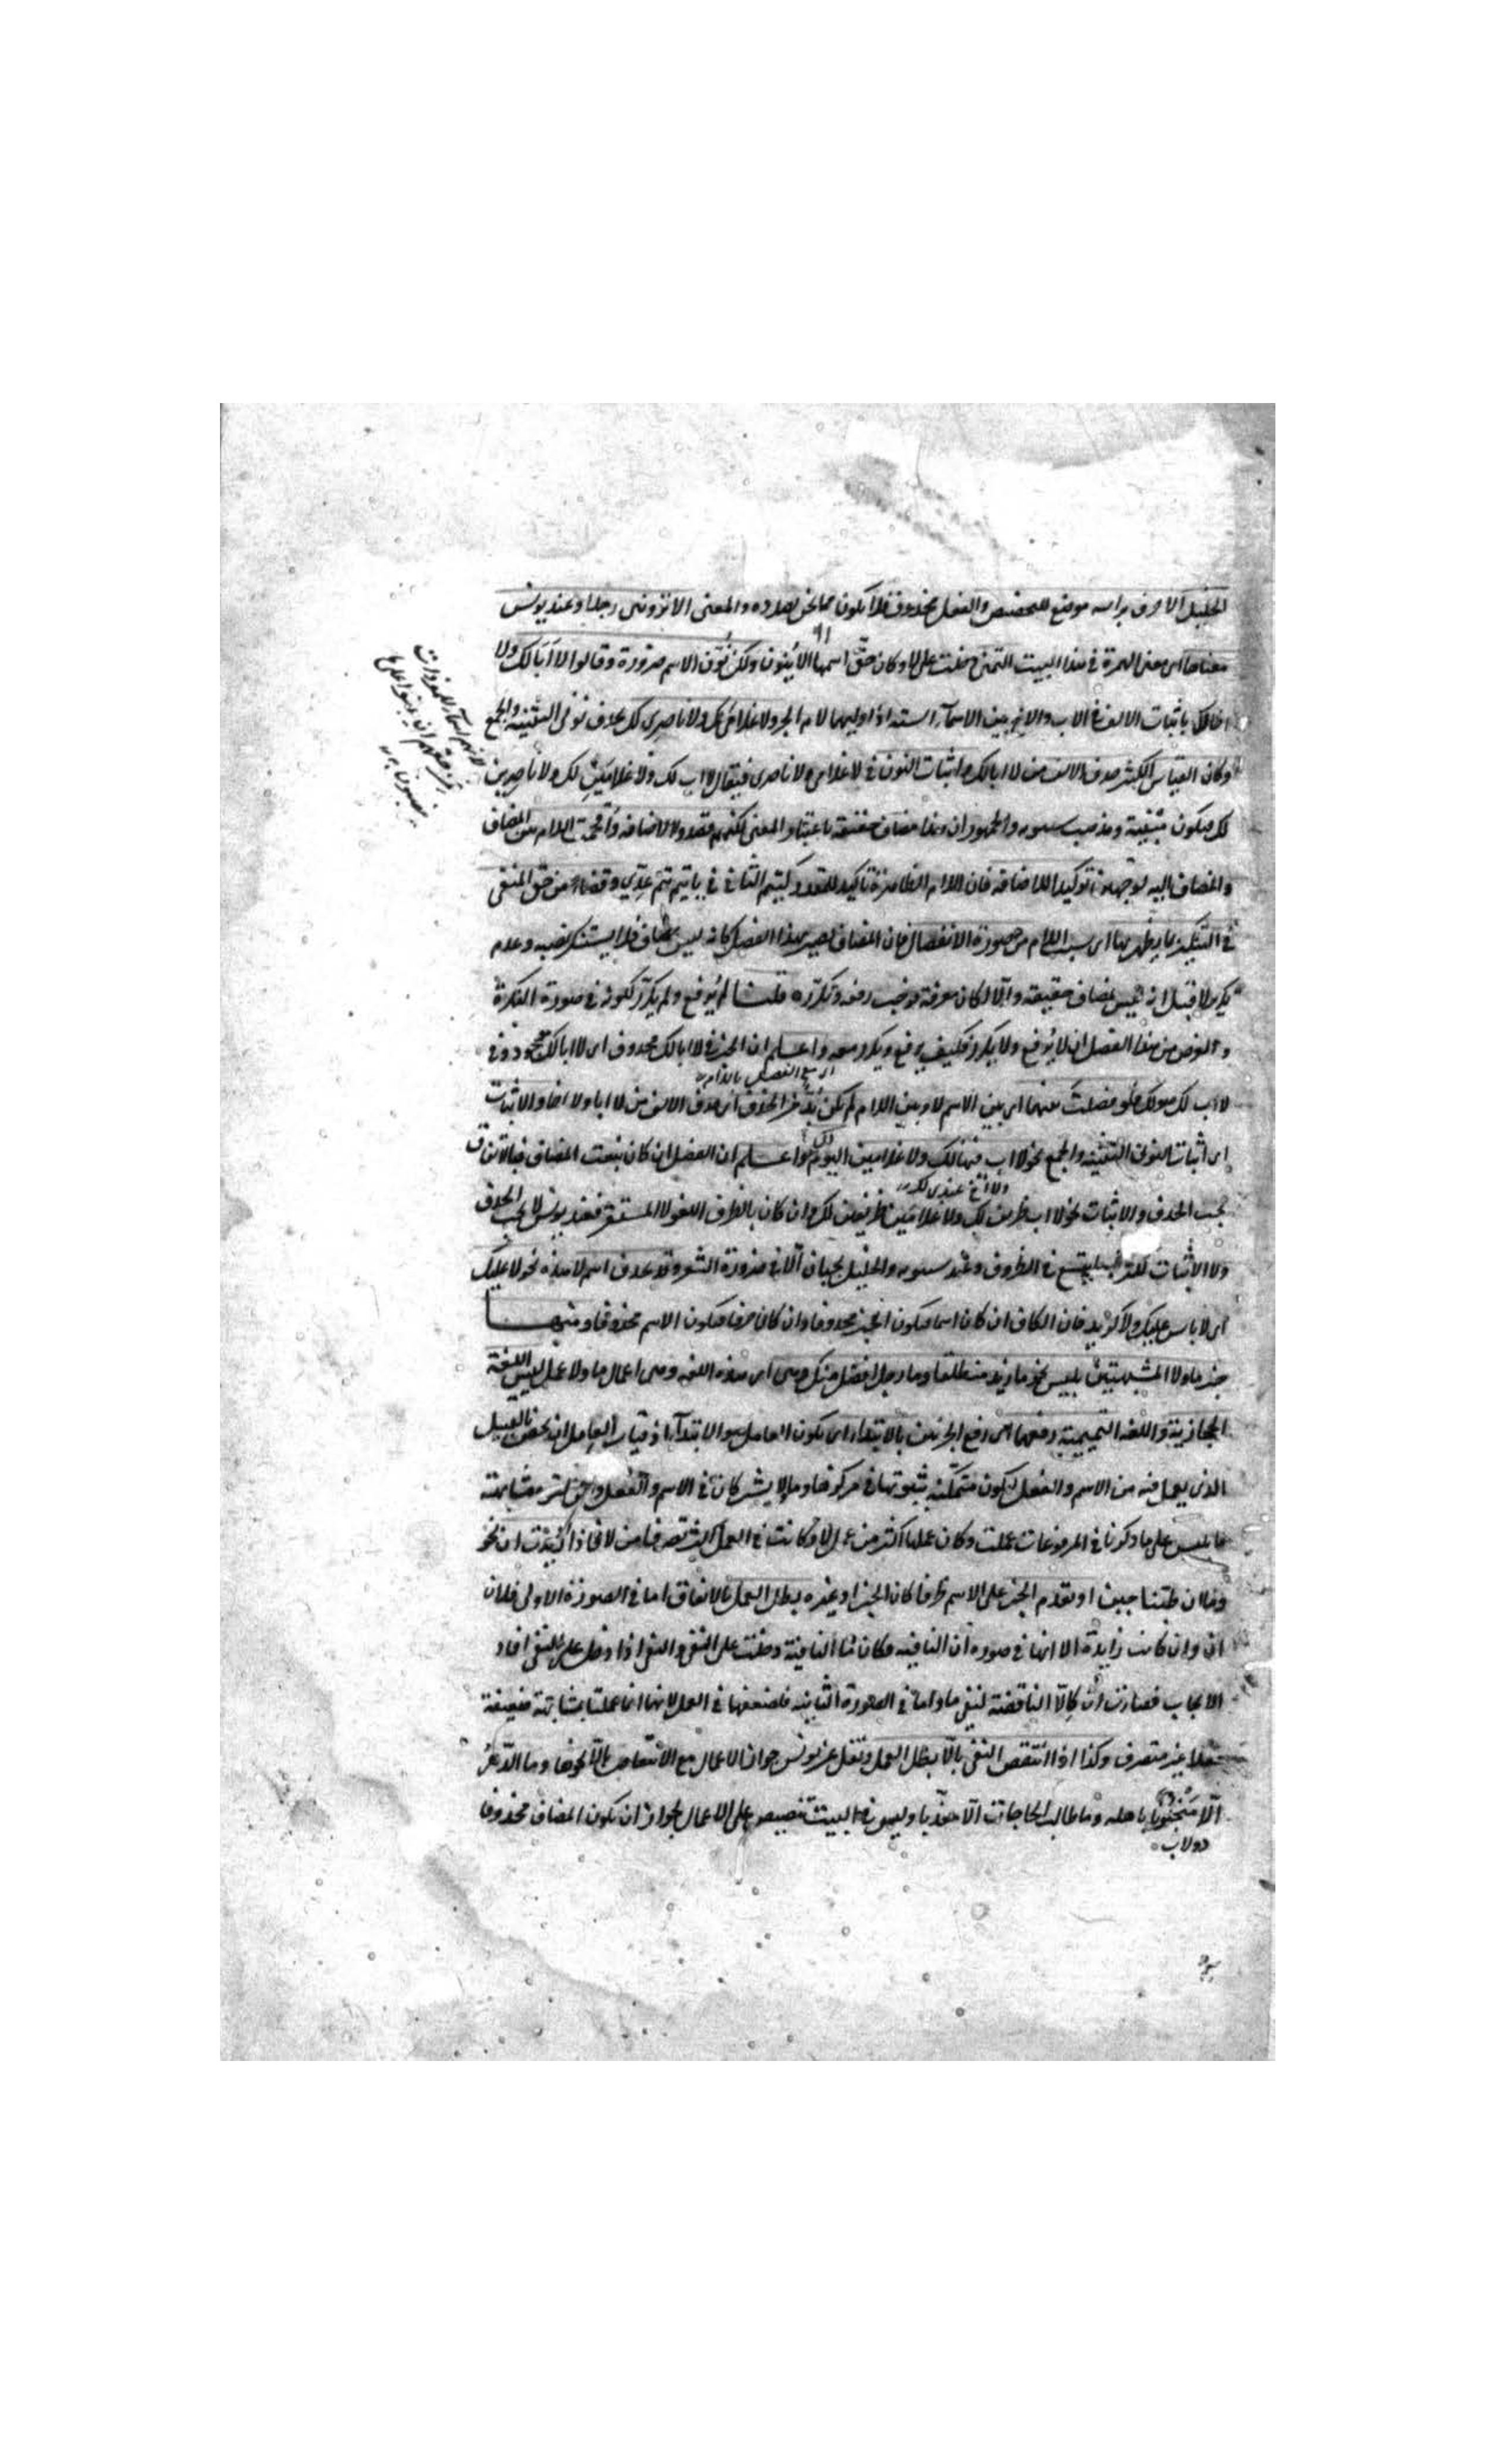 الخليل الا حرف براسه موضع للتحضيض والفعل محذوف فلا يكون مما نحن بصدده والمعنى الا تروننى رجلا وعند يونس
معناها اى معنى الهمزة فى هذا البيت التمنى دخلت على لا وكان حق اسمها الا ينون ولكن نون الاسم ضرورة وقالوا لا ابا لك ولا
اخا لك باثبات الالف فى الاب والاخ من الاسماء الستة اذا وليهما لام الجر ولا غلامى لك ولا ناصرى لك بحذف نونى التثنية والجمع
وكان القياس الكثير حذف الالف من لا ابا لك واثبات النون فى لا غلامى ولا ناصرى فيقال لا اب لك ولا غلامين لك ولا ناصرين
لك فيكون مبنية ومذهب سيبويه والجمهور ان هذا مضاف حقيقة باعتبار المعنى لكنهم قصدوا الاضافة واقحمت اللام بين المضاف
والمضاف اليه لوجهين توكيدا للاضافة فان اللام الظاهرة تاكيد للمقدر كتيم الثانى فى يا تيم تيم عدى وقضاء من حق المنفى
فى التنكير بما يظهر بها اى بسبب اللام من صورة الانفصال فان المضاف يصير بهذا الفصل كانه ليس بمضاف فلا يستنكر نصبه وعدم
تكريره لا قيل انه ليس بمضاف حقيقة والا لكان معرفة فوجب رفعه وتكرره قلنا لم يرفع ولم يكرر لكونه فى صورة النكرة
والغرض من هذا الفصل ان لا يرفع ولا يكرر فكيف يرفع ويكرر معه واعلم ان الخبر فى لا ابا لك محذوف اى لا ابا لك موجود وفى
اى مع الفصل باللام
لا اب لك هو لك فلو فصلت بينهما اى بين الاسم لا وبين اللام لم يكن بد من الحذف اى حذف الالف من لا ابا ولا اخا والاثبات
اى اثبات النون فى التثنية والجمع نحو لا اب فيها لك ولا غلامين اليوم لك واعلم ان الفصل ان كان بنعت المضاف فبالاتفاق
ولا اخ عندى لك
يجب الحذف والاثبات نحو لا اب ظريف لك ولا غلامين ظريفين لك وان كان بالظرف اللغو لا المستقر فعند يونس لا يجب الحذف
ولا الاثبات يتسع فى الظروف وعند سيبويه والخليل يجبان الا فى ضرورة الشعر وقد يحذف اسم لا هذه نحو لا عليك
اى لا باس عليك ولا كزيد فان الكاف ان كان اسما فيكون الخبر محذوفا وان كان حرفا فيكون الاسم محذوفا ومنها
خبر ما ولا المشبهتين بليس نحو ما زيد منطلقا وما رجل افضل منك وهى اى هذه اللغة وهى اعمال ما ولا عمل ليس اللغة
الحجازية واللغة التميمية رفعهما اى رفع الجزئين بالابتداء اى يكون العامل هو الابتداء اذ قياس العامل ان يختص بالقبيل
الذى يعمل فيه من الاسم والفعل ليكون متمكنة بثبوتها فى مركزها وما ولا يشتركان فى الاسم والفعل مشابهة
ما ليس على ما ذكرنا فى المرفوعات عملت وكان عملها اكثر من عمل لا وكانت فى العمل اكثر تصرفا من لا فاذا زيدت ان نحو
وما ان طبنا جبن او تقدم الخبر على الاسم ظرفا كان الخبر او غيره يبطل العمل بالاتفاق اما فى الصورة الاولى فلان
ان وان كانت زايدة الا انها فى صورة ان النافية فكان ما النافية دخلت على النفى والنفى اذا دخل على النفى افاد
الايجاب فصارت ان كالا الناقضة لنفى ما واما فى الصورة الثانية فلضعفها فى العمل لانها انما عملت بمشابهة ضعيفة
فعلا غير متصرف وكذا اذا انتقض النفى بالا يبطل العمل ونقل عن يونس جواز الاعمال مع الانتقاض بالا نحو وما الدهر
الا منجنونا باهله وما طالب الحاجات الا معذبا وليس فى البيت تنصيص على الاعمال لجواز ان يكون المضاف محذوفا
دولاب